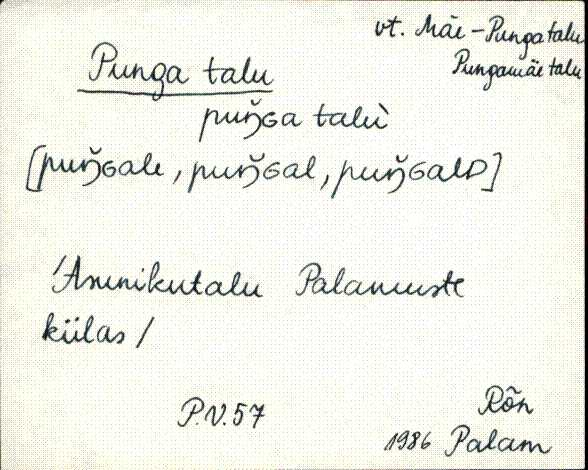 vt. Mäe-Punga talu
Pungamäe talu
Punga talu
puŋ̆ɢa talù
[puŋ̆ɢale, puŋ̆ɢal, puŋ̆ɢalD]
/Asunikutalu Palamuste
külas/
P.V.57
Rõn
1986 Palam